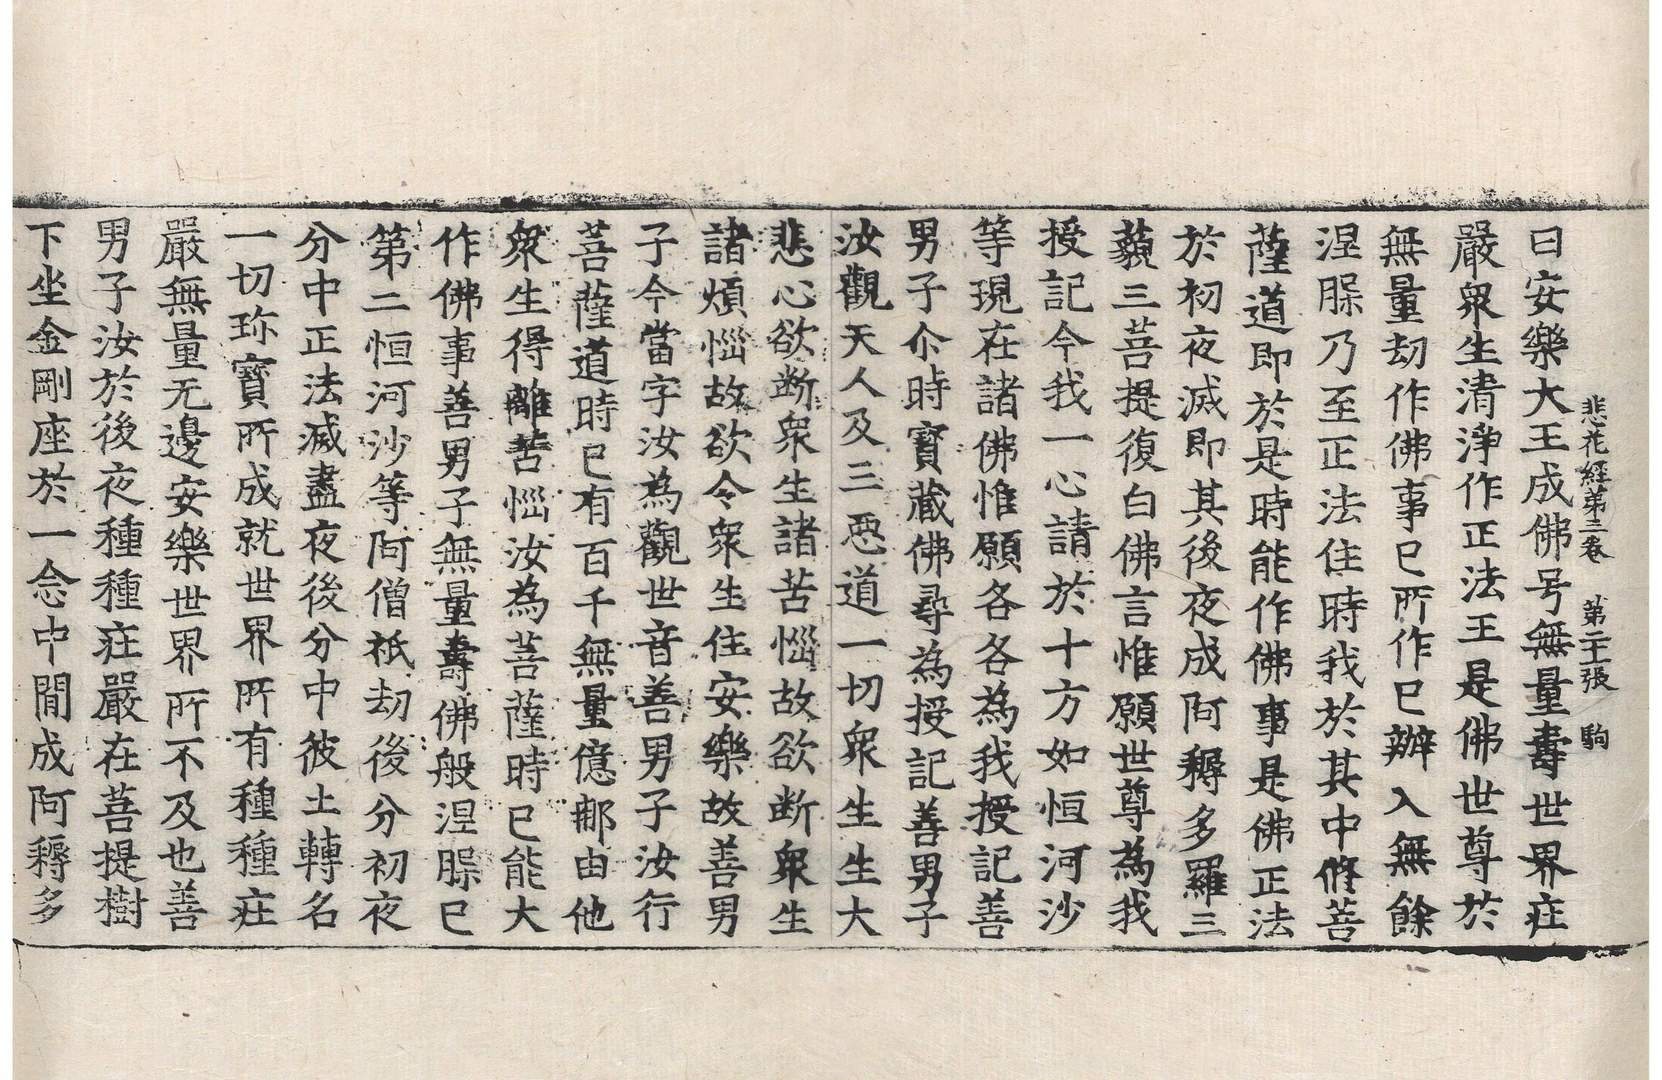 悲花經第三卷 第二十張 駒
曰安樂大王成佛号無量壽世界莊
嚴衆生清淨作正法王是佛世尊於
無量劫作佛事已所作已辦入無餘
涅槃乃至正法住時我於其中修菩
薩道即於是時能作佛事是佛正法
於初夜滅即其後夜成阿耨多羅三
藐三菩提復白佛言惟願世尊為我
授記今我一心請於十方如恒河沙
等現在諸佛惟願各各為我授記善
男子尒時寶藏佛尋為授記善男子
汝觀天人及三惡道一切衆生生大
悲心欲断衆生諸苦惱故欲断衆生
諸煩惱故欲令衆生住安樂故善男
子今當字汝為觀世音善男子汝行
菩薩道時已有百千無量億那由他
衆生得離苦惱汝為菩薩時已能大
作佛事善男子無量壽佛般涅槃已
第二恒河沙等阿僧祇劫後分初夜
分中正法滅盡夜後分中彼土轉名
一切珎寶所成就世界所有種種莊
嚴無量无邊安樂世界所不及也善
男子汝於後夜種種莊嚴在菩提樹
下坐金剛座於一念中間成阿耨多